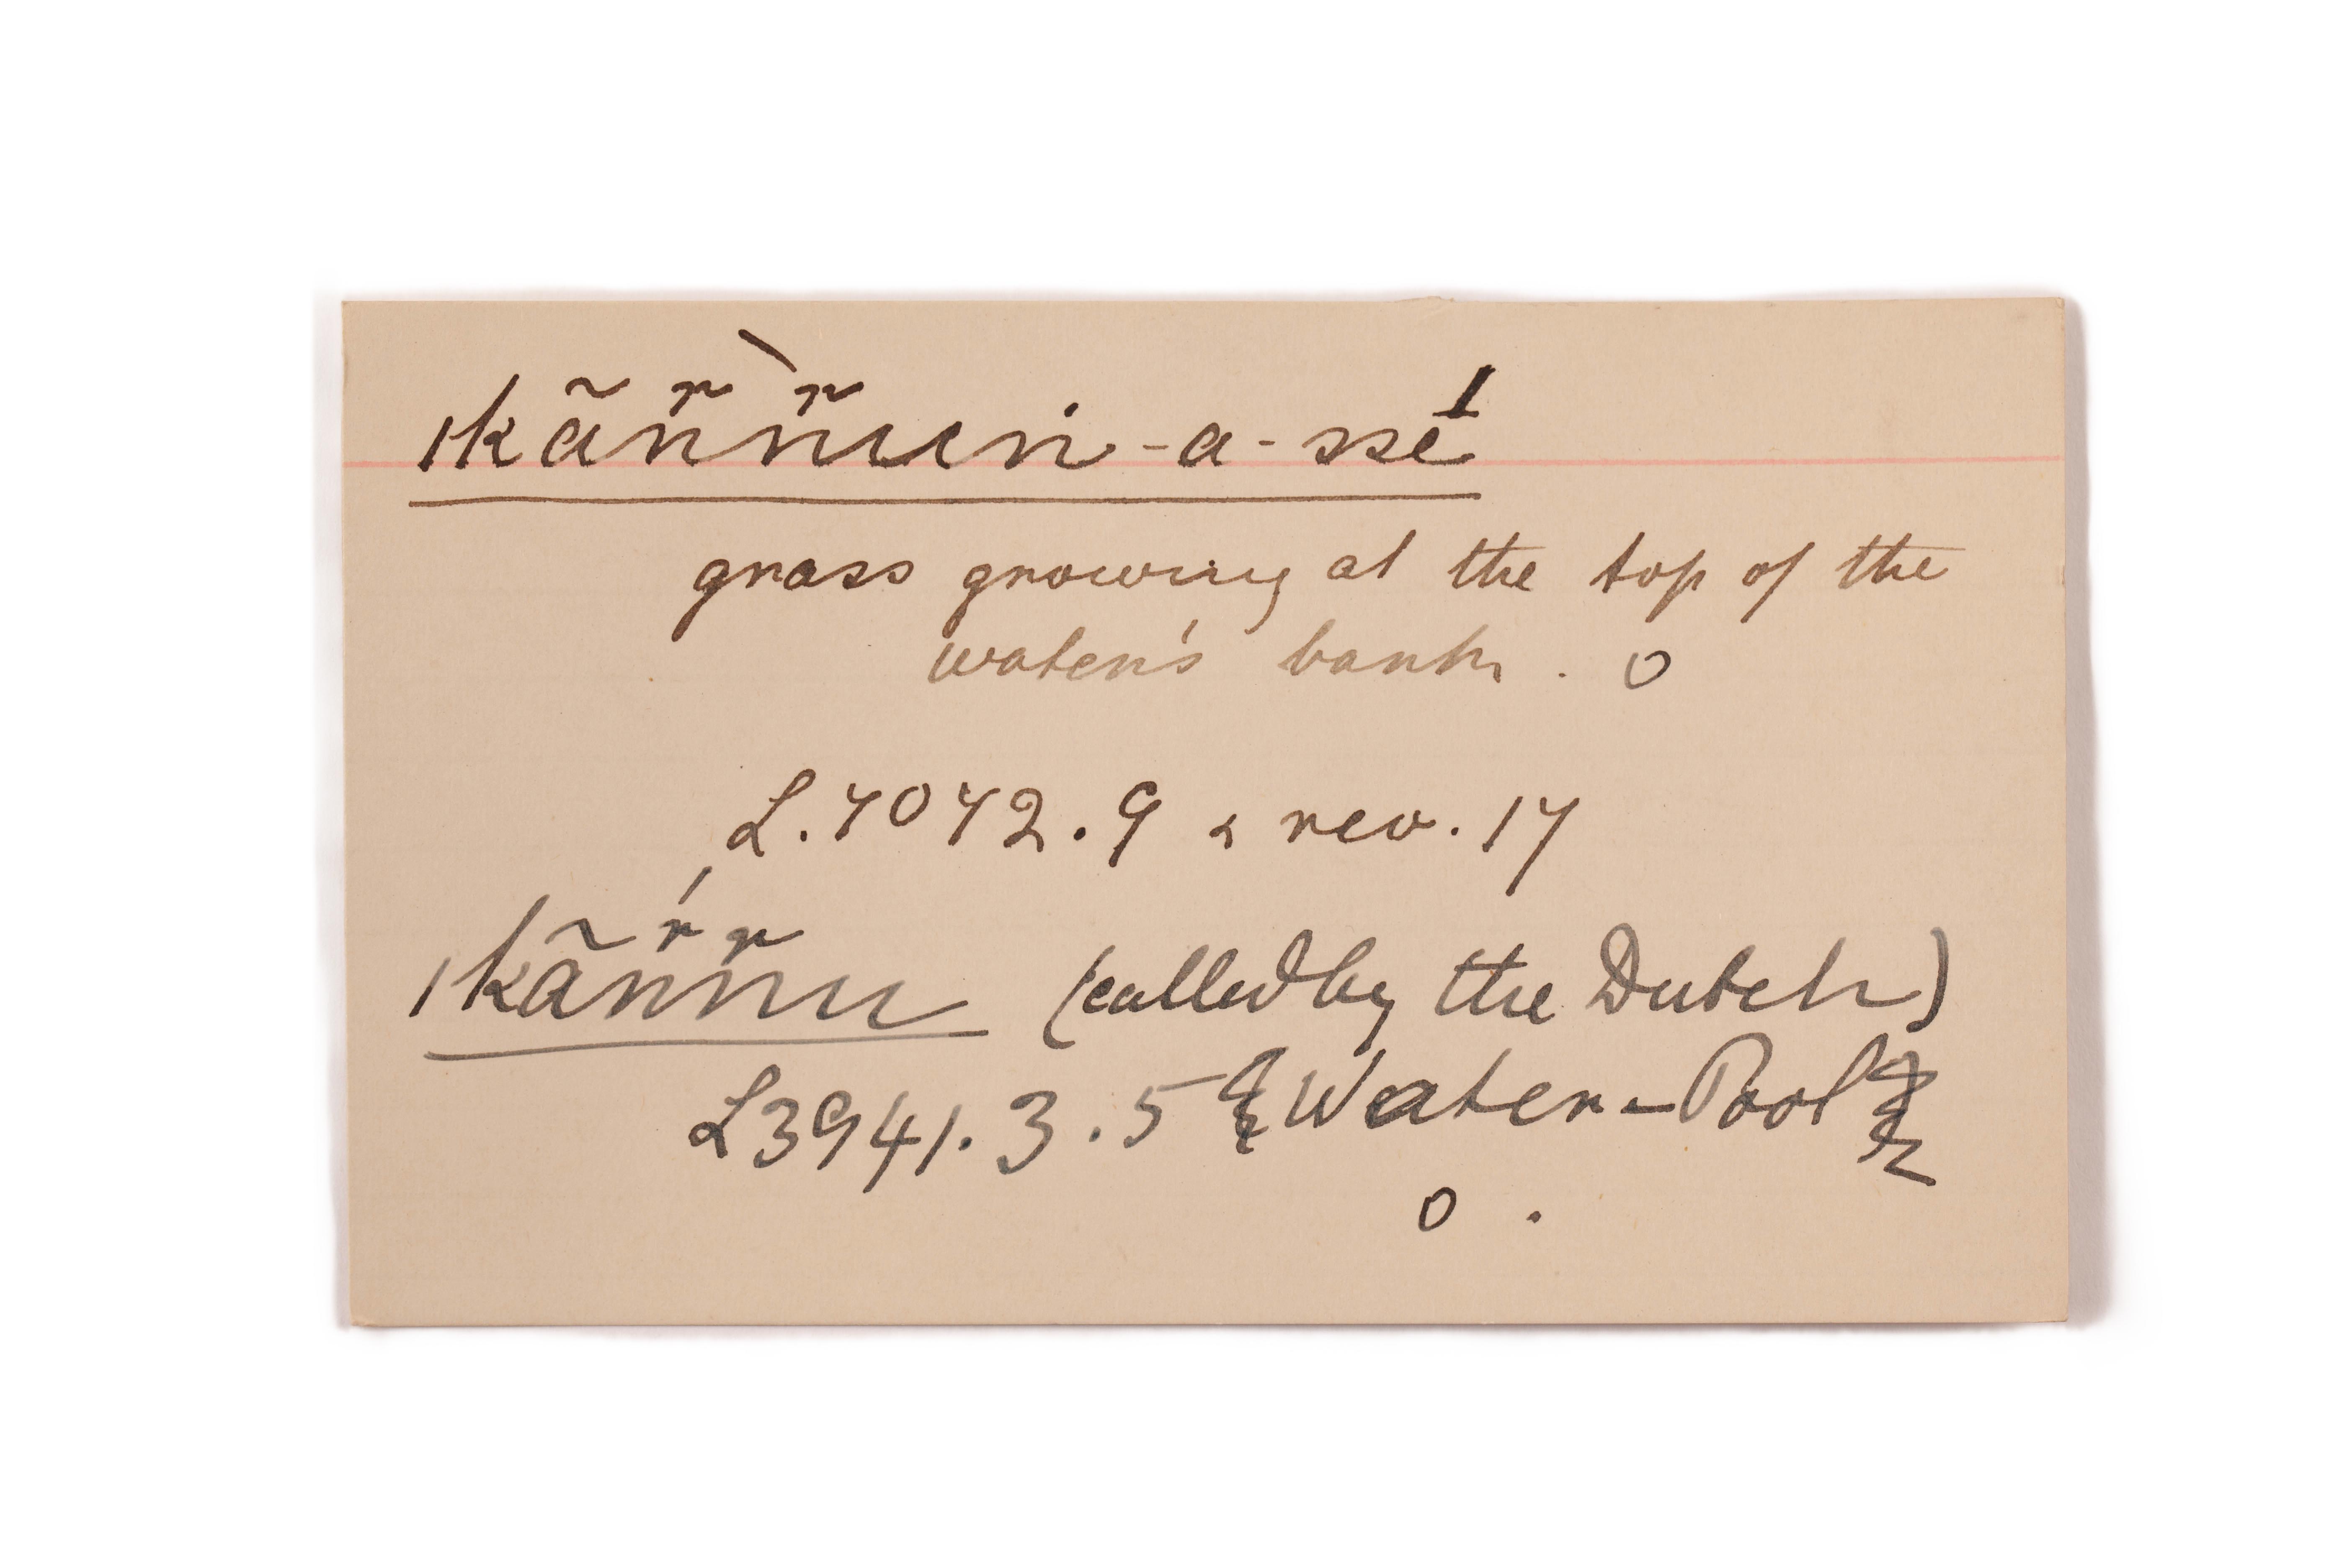 ǀkã̃n̆n̆uin-a-ssé
grass growing at the top of the
water's bank. O
L.7072.9 & rev. 17
ǀkãn̆n̆u (called by the Dutch)
L3941.3.5 { Water-Pool }
O .